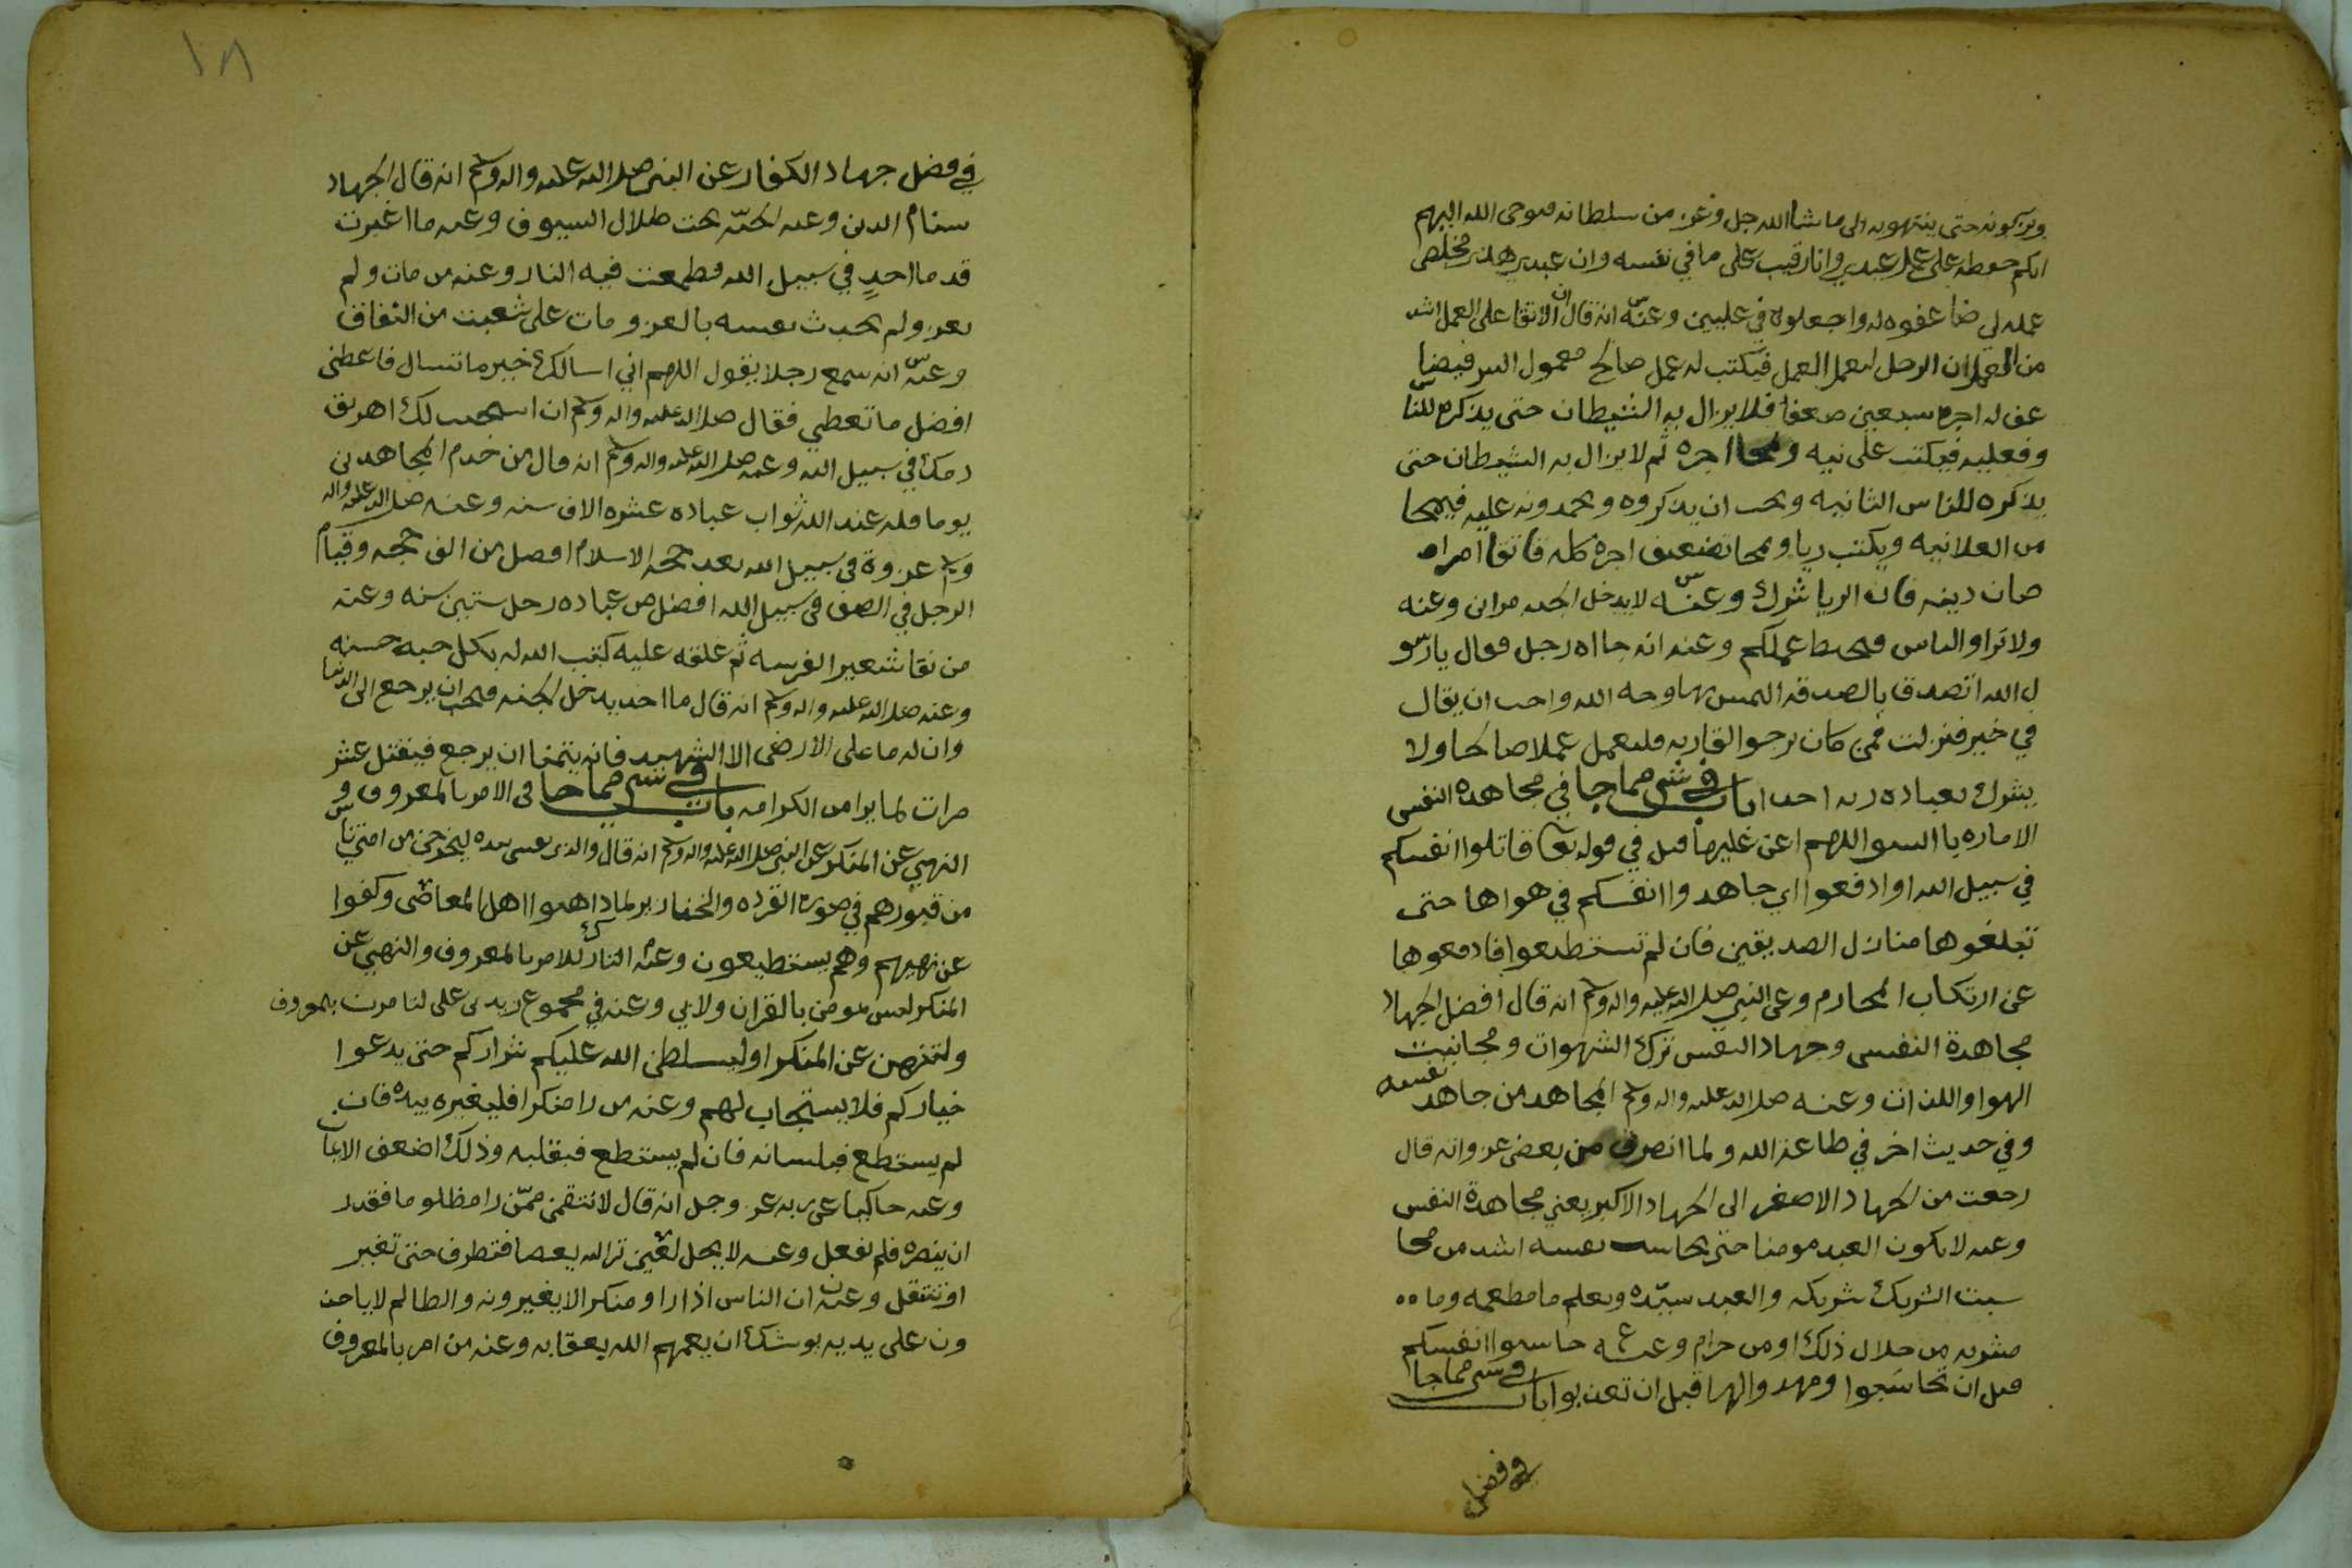 ويزكونه حتى ينتهوبه الى ما شا الله جل وعز من سلطانه فيوحى الله اليهم
انكم حفظه على عمل عبدي وانا رقيب على ما في نفسه وان عبدي هذا مخلص
عمله لي ضاعفوه له واجعلوه في عليين وعنه انه قال ان الاتقا على العمل اشد
من العمل ان الرجل ليعمل العمل فيكتب له عمل صالح معمول السر فيضا
عف له اجره سبعين ضعفا فلا يزال به الشيطان حتى يذكره للناس
وفعليه فيكتب علانيه ويمحا اجره ثم لا يزال به الشيطان حتى
يذكره للناس الثانيه ويحب ان يذكروه ويحمدونه عليه فيمحا
من العلانيه ويكتب ريا ويمحا تضعيف اجره كله فاتقا امراء
صان دينه فان الريا شرك وعنه لا يدخل الجنه مراى وعنه
ولا تراوا الناس فيحبط عملكم وعنه انه جااه رجل فقال يا رسو
ل الله اتصدق بالصدقه التمس بها وجه الله واحب ان يقال
في خير فنزلت فمن كان يرجو القا ربه فليعمل عملا صالحا ولا
يشرك بعباده ربه احدا باب في شي مما جا في مجاهده النفس
الاماره بالسو اللهم اعن عليها قيل في قوله تعا قاتلوا انفسكم
في سبيل الله او ادفعوا اي جاهدوا انفسكم في هواها حتى
تبلغوها منازل الصديقين فان لم تستطيعوا فادفعوها
عن ارتكاب المحارم وعن النبي صلى الله عليه واله وسلم انه قال افضل الجهاد
مجاهدة النفس وجهاد النفس ترك الشهوات ومجانبت
الهوا واللذات وعنه صلى الله عليه واله وسلم المجاهد من جاهد نفسه
وفي حديث اخر في طاعة الله ولما انصرف من بعض غزواته قال
رجعت من الجهاد الاصغر الى الجهاد الاكبر يعني مجاهدة النفس
وعنه لا يكون العبد مومنا حتى يحاسب نفسه اشد من محا
سبت الشريك شريكه والعبد سيده ويعلم ما مطعمه وما
مشربه من حلال ذلك او من حرام وعنه حاسبوا انفسكم
قبل ان تحاسبوا ومهدوا لها قبل ان تعذبوا باب في شي مما جا
في فضل
١٨
في فضل جهاد الكفار عن النبي صلى الله عليه واله وسلم انه قال الجهاد
سنام الدين وعنه الجنه تحت ظلال السيوف وعنه ما اغبرت
قدما احدٍ في سبيل الله فطمعت فيه النار وعنه من مات ولم
يغز ولم يحدث نفسه بالغزو مات على شعبت من النفاق
وعنه انه سمع رجلا يقول اللهم اني اسالك خير ما تسال فاعطني
افضل ما تعطي فقال صلى الله عليه واله وسلم ان استجيب لك اهريق
دمك في سبيل الله وعنه صلى الله عليه واله وسلم انه قال من خدم المجاهدين
يوما فله عند الله ثواب عباده عشره الاف سنه وعنه صلى الله عليه واله
وسلم غزوة في سبيل الله بعد حجه الاسلام افضل من الف حجه وقيام
الرجل في الصف في سبيل الله افضل من عباده رجل ستين سنه وعنه
من نقا شعيرا لفرسه ثم علقه عليه كتب الله له بكل حبه حسنه
وعنه صلى الله عليه واله وسلم انه قال ما احد يدخل الجنه فيحب ان يرجع الى الدنيا
وان له ما على الارض الا الشهيد فانه يتمنا ان يرجع فيقتل عشر
مرات لما يرا من الكرامه باب في شي مما جا في الامر بالمعروف و
النهي عن المنكر عن النبي صلى الله عليه واله وسلم انه قال والذي نفسي بيده ليخرجن من امتي ناس
من قبورهم في صورة القرده والخنازير لما داهنوا اهل المعاصي وكفوا
عن نهيهم وهم يستطيعون وعنه التارك للامر بالمعروف والنهي عن
المنكر ليس مومن بالقران ولا بي وعنه في مجموع زيد بن علي لتامرن بالمعروف
ولتنهن عن المنكر او ليسلطن الله عليكم شراركم حتى يدعوا
خياركم فلا يستجاب لهم وعنه من را منكرا فليغيره بيده فان
لم يستطع فبلسانه فان لم يستطع فبقلبه وذلك اضعف الايمان
وعنه حاكيا عن ربه عز وجل انه قال لانتقمن ممّن را مظلوما فقدر
ان ينصره فلم يفعل وعنه لا يحل لعين ترا الله يعصا فتطرف حتى تغير
او تنتقل وعنه ان الناس اذا راو منكرا لا يغيرونه والظالم لا ياخذ
ون على يديه يوشك ان يعمهم الله بعقابه وعنه من امر بالمعروف